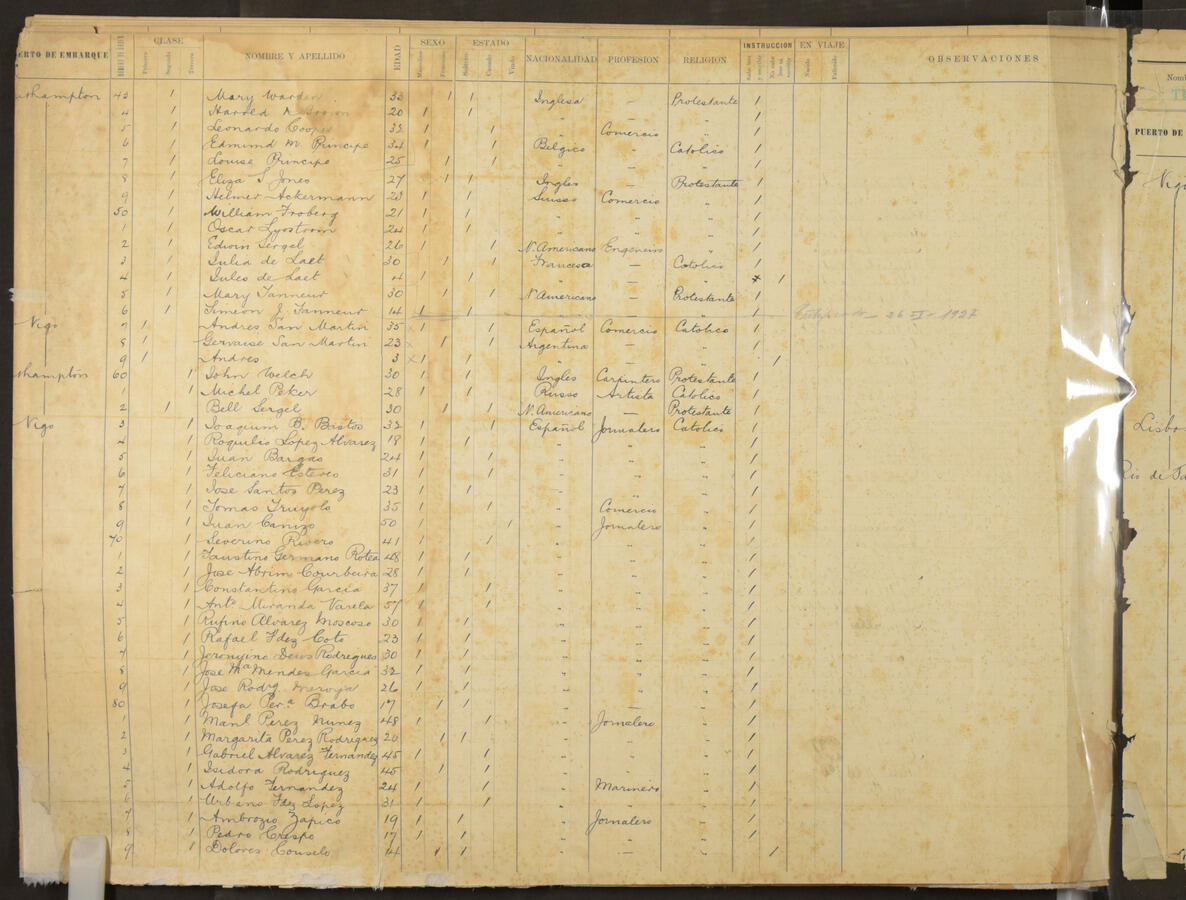 ERTO DE EMBARQUE CLASE Primera Segunda Tercera NOMBRE Y APELLIDO EDAD SEXO Masculino Femenino ESTADO Soltero Casado Viudo NACIONALIDAD PROFESION RELIGION INSTRUCCION EN VIAJE OBSERVACIONES
hampton 43 / Mary Warden 33 / / Inglesa — Protestante /
4 / Harold 20 / / " — " /
5 / Leonardo Cooper 39 / / " Comercio " /
6 / Edmund M. Principe 34 / / Belgico " Catolico /
7 / Louise Principe 25 / / " — " /
8 / Eliza S Jones 27 / / Ingles — Protestante /
9 / Helmer Ackermann 23 / / Comercio " /
50 / William Froberg 21 / / " " " /
1 / Oscar Lyostrom 24 / / " " " /
2 / Edwin Sergel 26 / / N. Americano Engeneiro " /
3 / Julia de Laet 30 / / Francesa — Catolico /
4 / Jules de Laet 4 / / " — " /
5 / Mary Tanneur 30 / / N. Americano — Protestante /
6 / Simeon J. Tanneur 14 / / " — " / 1927
Vigo 7 / Andres San Martin 35 / / Español Comercio Catolico /
8 / Gervaise San Martin 23 / / Argentina — " /
9 / Andres 3 / / " — " /
hampton 60 / John Welch 30 / / Ingles Carpintero Protestante /
1 / Michel Peker 28 / / Russo Artista Catolico /
2 / Bell Sergel 30 / / N. Americano — Protestante /
Vigo 3 / Joaquim B. Bastos 32 / / Español Jornalero Catolico /
4 / Roquilio Lopez Alvarez 18 / / " " " /
5 / Juan Bargas 24 / / " " " /
6 / Feliciano Esteves 31 / / " " " /
7 / Jose Santos Perez 23 / / " " " /
8 / Tomas Truyolo 35 / / " Comercio " /
9 / Juan Canizo 50 / / " Jornalero " /
70 / Severino Rivero 41 / / " " " /
1 / Faustino Germano Rotea 48 / / " " " /
2 / Jose Abrim Courbeira 28 / / " " " /
3 / Constantino Garcia 37 / / " " " /
4 / Antº Miranda Varela 57 / / " " " /
5 / Rufino Alvarez Moscoso 30 / / " " " /
6 / Rafael Fdez Coto 23 / / " " " /
7 / Jeronymo Deus Rodregues 30 / / " " " /
8 / Jose Mª Mendes Garcia 32 / / " " " /
9 / Jose Rodrg 26 / / " " " /
80 / Josefa Perª Brabo 17 / / " — " /
1 / Manl Perez Nunez 48 / / " Jornalero " /
2 / Margarita Perez Rodriguez 20 / / " — " /
3 / Gabriel Alvarez Fernandez 45 / / " " " /
4 / Isidora Rodriguez 45 / / " — " /
5 / Adolfo Fernandez 24 / / " Marinero " /
6 / Urbano Fdez Lopez 31 / / " " " /
7 / Ambrozio Zapico 19 / / " Jornalero " /
8 / Pedro Crespo 17 / / " " " /
9 / Dolores Conselo 14 / / " — " /
PUERTO DE
Vigo
Lisbo